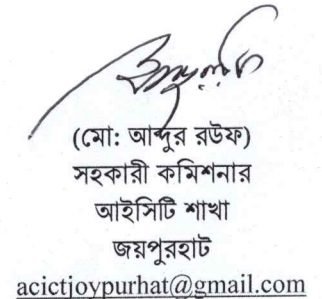 (মো: আব্দুর রউফ)
সহকারী কমিশনার
আইসিটি শাখা
জয়পুরহাট
acictjoypurhat@gmail.com